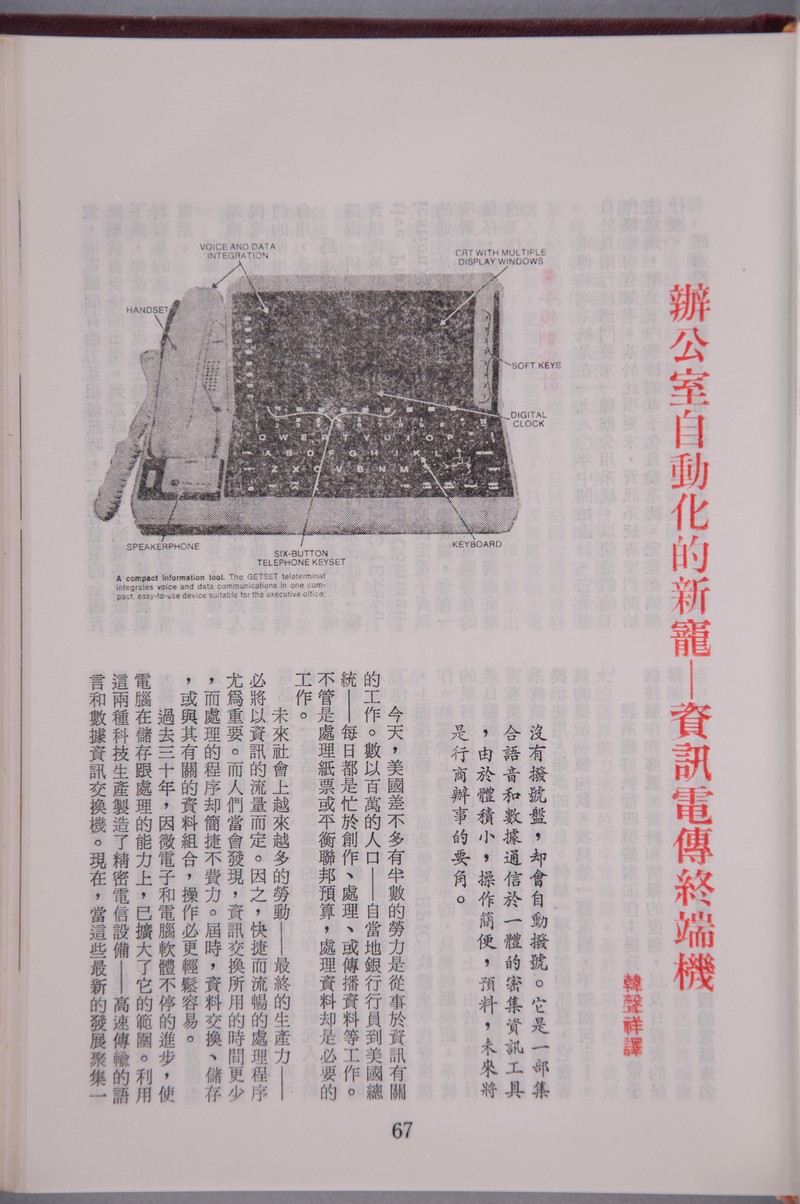 辦公室自動化的新寵—資訊電傳終端機
韓聲祥譯
沒有撥號盤，却會自動撥號。它是一部集
合語音和數據通信於一體的密集資訊工具
，由於體積小，操作簡便，預料，未來將
是行商辦事的要角。
VOICE AND DATA
INTEGRATION
CRT WITH MULTIPLE
DISPLAY WINDOWS
HANDSET
SOFT KEYS
DIGITAL
CLOCK
SPEAKERPHONE
SIX-BUTTON
TELEPHONE KEYSET
KEYBOARD
A compact information tool. The GETSET teleterminal
integrates voice and data communications in one com-
pact, easy-to-use device suitable for the executive office.
今天，美國差不多有半數的勞力是從事於資訊有關
的工作。數以百萬的人口——自當地銀行行員到美國總
統——每日都是忙於創作、處理、或傳播資料等工作。
不管是處理紙票或平衡聯邦預算，處理資料却是必要的
工作。
未來社會上越來越多的勞動——最終的生產力——
必將以資訊的流量而定。因之，快捷而流暢的處理程序
尤爲重要。而人們當會發現，資訊交換所用的時間更少
，而處理的程序却簡捷不費力。屆時，資料交換、儲存
，或與其有關的資料組合，操作必更輕鬆容易。
過去三十年，因微電子和電腦軟體不停的進步，使
電腦在儲存跟處理的能力上，已擴大了它的範圍。利用
這兩種科技生產製造了精密電信設備——高速傳輸的語
言和數據資訊交換機。現在，當這些最新的發展聚集一
67